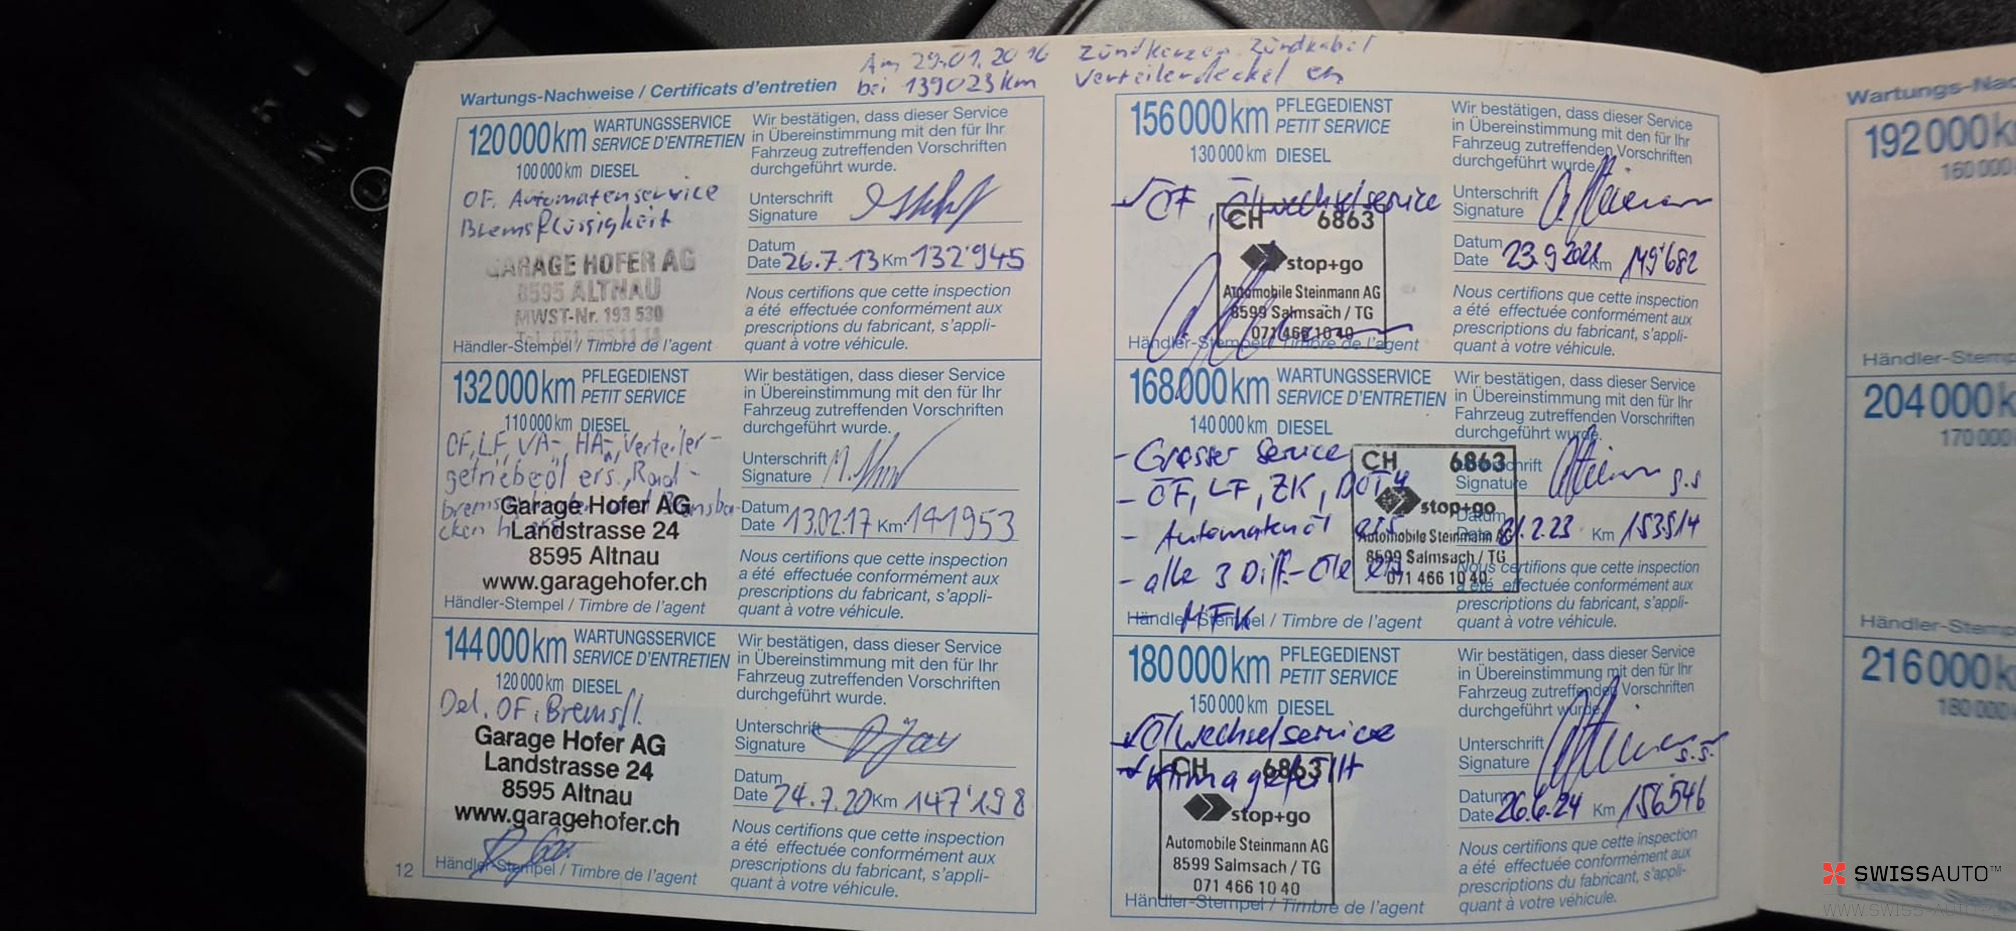 Am 29.01.2016 Zündkerzen Zündkabel
bei 139023 km Verteilerdeckel
Wartungs-Nachweise / Certificats d'entretien
120000km WARTUNGSSERVICE
SERVICE D'ENTRETIEN
100000km DIESEL
OF, Automatenservice
Bremsflüssigkeit
GARAGE HOFER AG
8595 ALTNAU
MWST-Nr. 193 530
Händler-Stempel / Timbre de l'agent
Wir bestätigen, dass dieser Service
in Übereinstimmung mit den für Ihr
Fahrzeug zutreffenden Vorschriften
durchgeführt wurde.
Unterschrift
Signature
Datum
Date 26.7.13 Km 132'945
Nous certifions que cette inspection
a été effectuée conformément aux
prescriptions du fabricant, s'appli-
quant à votre véhicule.
132000km PFLEGEDIENST
PETIT SERVICE
110000km DIESEL
OF, LF, VA-, HA-, Verteiler-
getriebeöl ers., Rad-
Garage Hofer AG
Landstrasse 24
8595 Altnau
www.garagehofer.ch
Händler-Stempel / Timbre de l'agent
Wir bestätigen, dass dieser Service
in Übereinstimmung mit den für Ihr
Fahrzeug zutreffenden Vorschriften
durchgeführt wurde.
Unterschrift
Signature
Datum
Date 13.02.17 Km 141953
Nous certifions que cette inspection
a été effectuée conformément aux
prescriptions du fabricant, s'appli-
quant à votre véhicule.
144000km WARTUNGSSERVICE
SERVICE D'ENTRETIEN
120000km DIESEL
Oel, OF, Bremsfl.
Garage Hofer AG
Landstrasse 24
8595 Altnau
www.garagehofer.ch
Händler-Stempel / Timbre de l'agent
Wir bestätigen, dass dieser Service
in Übereinstimmung mit den für Ihr
Fahrzeug zutreffenden Vorschriften
durchgeführt wurde.
Unterschrift
Signature
Datum
Date 24.7.20 Km 147'198
Nous certifions que cette inspection
a été effectuée conformément aux
prescriptions du fabricant, s'appli-
quant à votre véhicule.
12
156000km PFLEGEDIENST
PETIT SERVICE
130000km DIESEL
ÖF, Ölwechselservice
CH 6863
stop+go
Automobile Steinmann AG
8599 Salmsach / TG
071 466 10 40
Händler-Stempel / Timbre de l'agent
Wir bestätigen, dass dieser Service
in Übereinstimmung mit den für Ihr
Fahrzeug zutreffenden Vorschriften
durchgeführt wurde.
Unterschrift
Signature
Datum
Date 23.9.2021 Km 149'682
Nous certifions que cette inspection
a été effectuée conformément aux
prescriptions du fabricant, s'appli-
quant à votre véhicule.
168000km WARTUNGSSERVICE
SERVICE D'ENTRETIEN
140000km DIESEL
- Grosser Service
- ÖF, LF, ZK, DOT4
- Automatenöl ers.
- alle 3 Diff-Öle
MFK
CH 6863
stop+go
Automobile Steinmann AG
8599 Salmsach / TG
071 466 10 40
Händler-Stempel / Timbre de l'agent
Wir bestätigen, dass dieser Service
in Übereinstimmung mit den für Ihr
Fahrzeug zutreffenden Vorschriften
durchgeführt wurde.
Unterschrift
Signature
Datum
Date 21.2.23 Km 153514
Nous certifions que cette inspection
a été effectuée conformément aux
prescriptions du fabricant, s'appli-
quant à votre véhicule.
180000km PFLEGEDIENST
PETIT SERVICE
150000km DIESEL
Ölwechselservice
Klima gefüllt
CH 6863
stop+go
Automobile Steinmann AG
8599 Salmsach / TG
071 466 10 40
Händler-Stempel / Timbre de l'agent
Wir bestätigen, dass dieser Service
in Übereinstimmung mit den für Ihr
Fahrzeug zutreffenden Vorschriften
durchgeführt wurde.
Unterschrift
Signature
Datum
Date 26.6.24 Km 156546
Nous certifions que cette inspection
a été effectuée conformément aux
prescriptions du fabricant, s'appli-
quant à votre véhicule.
Wartungs-Na
192000k
160000
Händler-Stemp
204000k
170000
Händler-Stemp
216000k
180000
Händler-Stemp
SWISSAUTO™